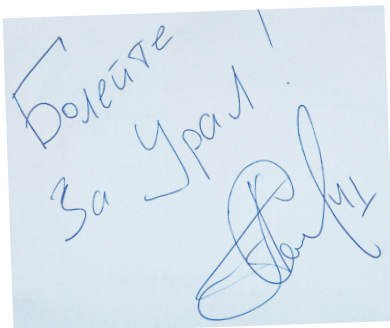 Болейте
за Урал!